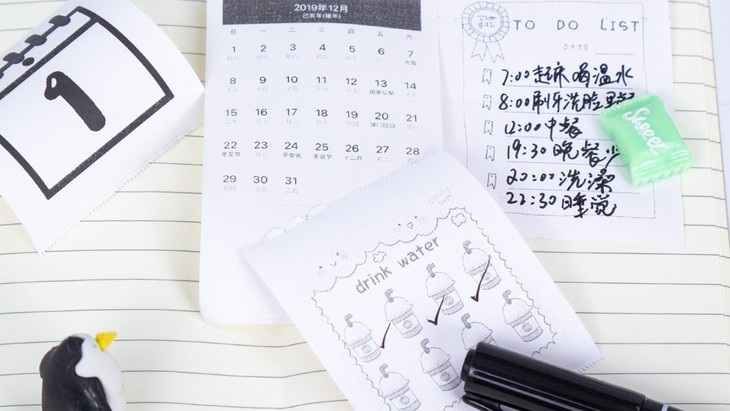 1
2019年12月
己亥年(猪年)
日 一 二 三 四 五 六
1 2 3 4 5 6 7
大雪
8 9 10 11 12 13 14
15 16 17 18 19 20 21
22 23 24 25 26 27 28
冬至节 平安夜 圣诞节 十二月
29 30 31
TO DO LIST
DATE
7:00起床喝温水
8:00刷牙洗脸
12:00中餐
19:30晚餐少
20:00洗澡
22:30睡觉
Sweet
drink water